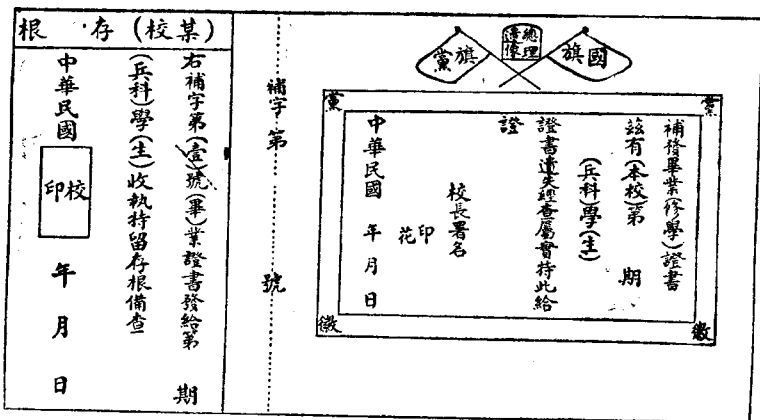 國旗
總理
遺像
黨旗
黨
黨
徽
徽
補發畢業(修學)證書
茲有(本校)第　期
(兵科)學(生)
證書遺失經查屬實特此給
證
校長署名
印
花
中華民國　年　月　日
補字第　號
(某校)存根
右補字第(壹)號(畢)業證書發給第　期
(兵科)學(生)收執特留存根備查
中華民國　年　月　日
校
印